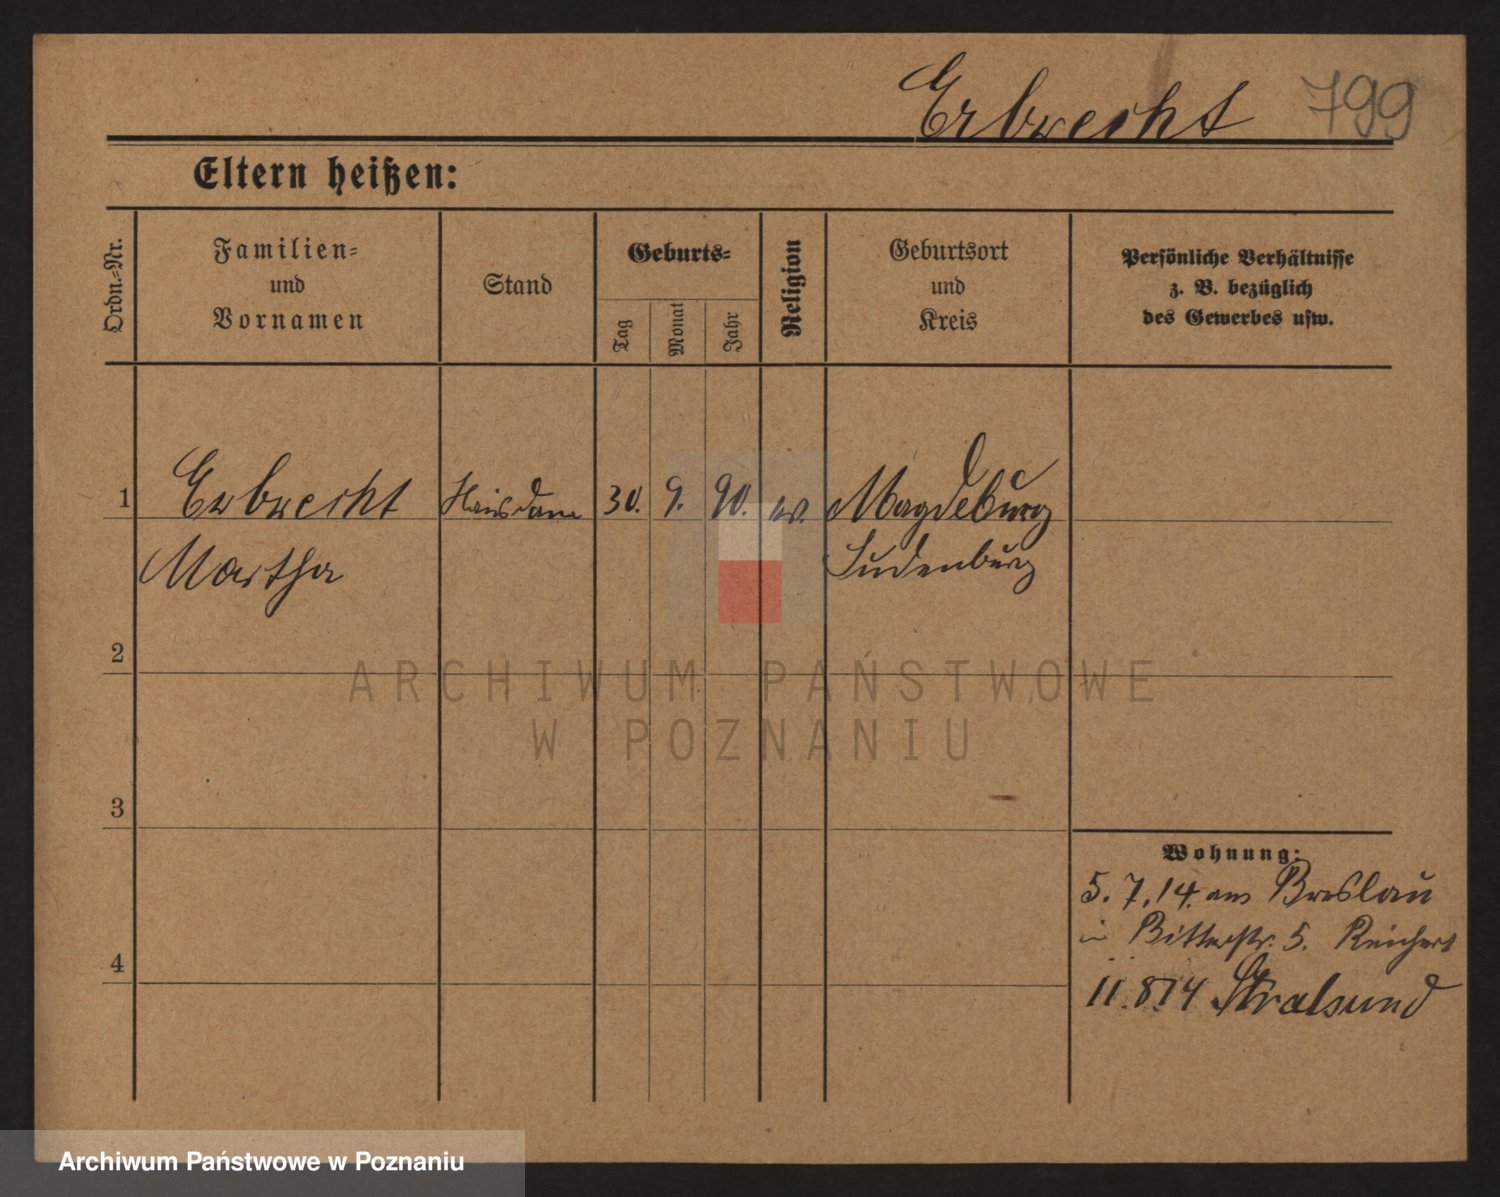 Erbrecht 799
Eltern heißen:
Ordn.-Nr.
Familien-
und
Vornamen
Stand
Geburts-
Tag
Monat
Jahr
Religion
Geburtsort
und
Kreis
Persönliche Verhältnisse
z. B. bezüglich
des Gewerbes usw.
1 Erbrecht Hausdame 30. 9. 90. ev. Magdeburg
Martha Sudenburg
2
3
4
ARCHIWUM PAŃSTWOWE
W POZNANIU
Wohnung:
5. 7. 14. aus Breslau
in Ritterstr. 5. Reichert
11.8.14 Stralsund
Archiwum Państwowe w Poznaniu